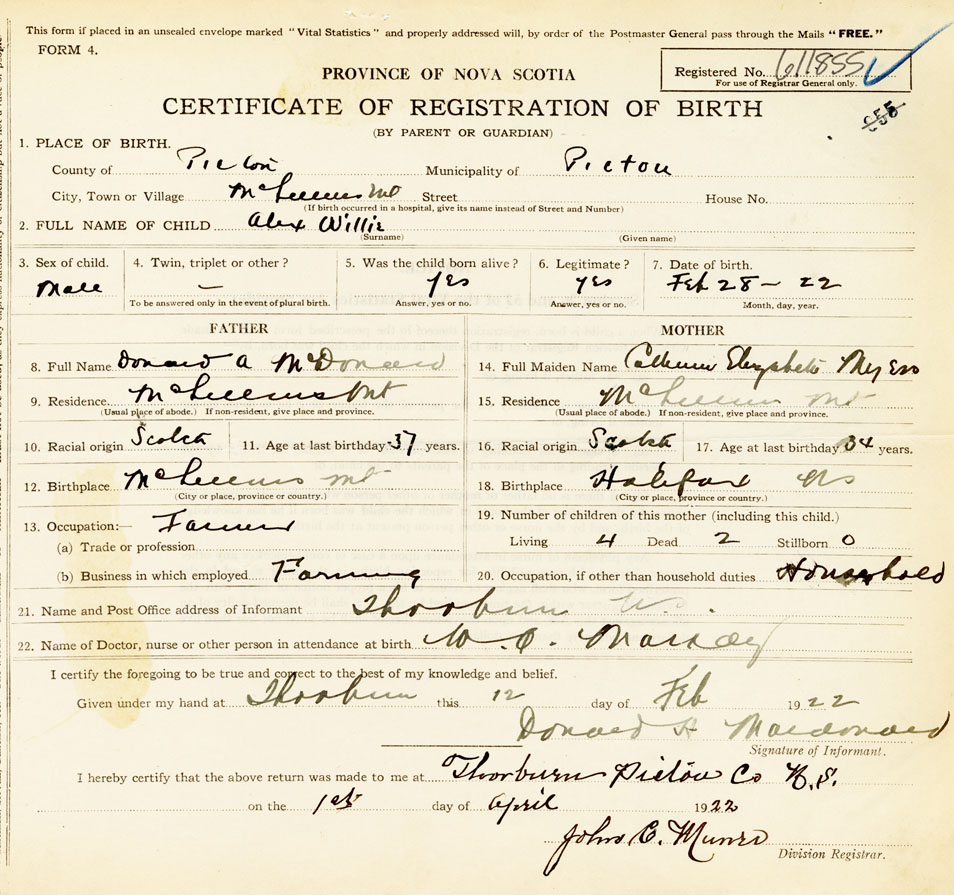 This form if placed in an unsealed envelope marked "Vital Statistics" and properly addressed will, by order of the Postmaster General pass through the Mails "FREE."
FORM 4.
PROVINCE OF NOVA SCOTIA
Registered No. 611855
For use of Registrar General only.
CERTIFICATE OF REGISTRATION OF BIRTH
(BY PARENT OR GUARDIAN)
1. PLACE OF BIRTH.
County of Pictou Municipality of Pictou
City, Town or Village McLellans Mt Street House No.
(If birth occurred in a hospital, give its name instead of Street and Number)
2. FULL NAME OF CHILD Alex Willie
(Surname) (Given name)
3. Sex of child. 4. Twin, triplet or other? 5. Was the child born alive? 6. Legitimate? 7. Date of birth.
Male — yes yes Feb 28 - 22
To be answered only in the event of plural birth. Answer, yes or no. Answer, yes or no. Month, day, year.
FATHER MOTHER
8. Full Name Donald A McDonald 14. Full Maiden Name Catherine Elizabeth Myers
9. Residence McLellans Mt 15. Residence McLellans Mt
(Usual place of abode.) If non-resident, give place and province. (Usual place of abode.) If non-resident, give place and province.
10. Racial origin Scotch 11. Age at last birthday 37 years. 16. Racial origin Scotch 17. Age at last birthday 34 years.
12. Birthplace McLellans Mt 18. Birthplace Halifax NS
(City or place, province or country.) (City or place, province or country.)
13. Occupation:— Farmer 19. Number of children of this mother (including this child.)
(a) Trade or profession Living 4 Dead 2 Stillborn 0
(b) Business in which employed Farming 20. Occupation, if other than household duties Household
21. Name and Post Office address of Informant Thorburn
22. Name of Doctor, nurse or other person in attendance at birth
I certify the foregoing to be true and correct to the best of my knowledge and belief.
Given under my hand at Thorburn this 12 day of Feb 1922
Donald A Macdonald
Signature of Informant.
I hereby certify that the above return was made to me at Thorburn Pictou Co N.S.
on the 1st day of April 1922
John C. Munro
Division Registrar.